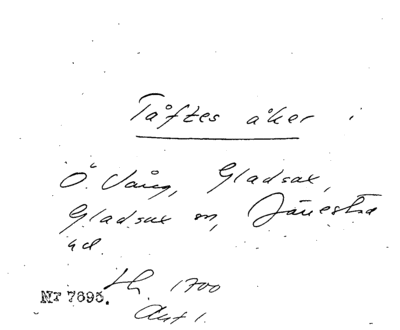 Tåftes åker i
Ö. Vång, Gladsax,
Gladsax sn, Järrestads
hd.
Lh. 1700
Akt 1.
NT 7695.